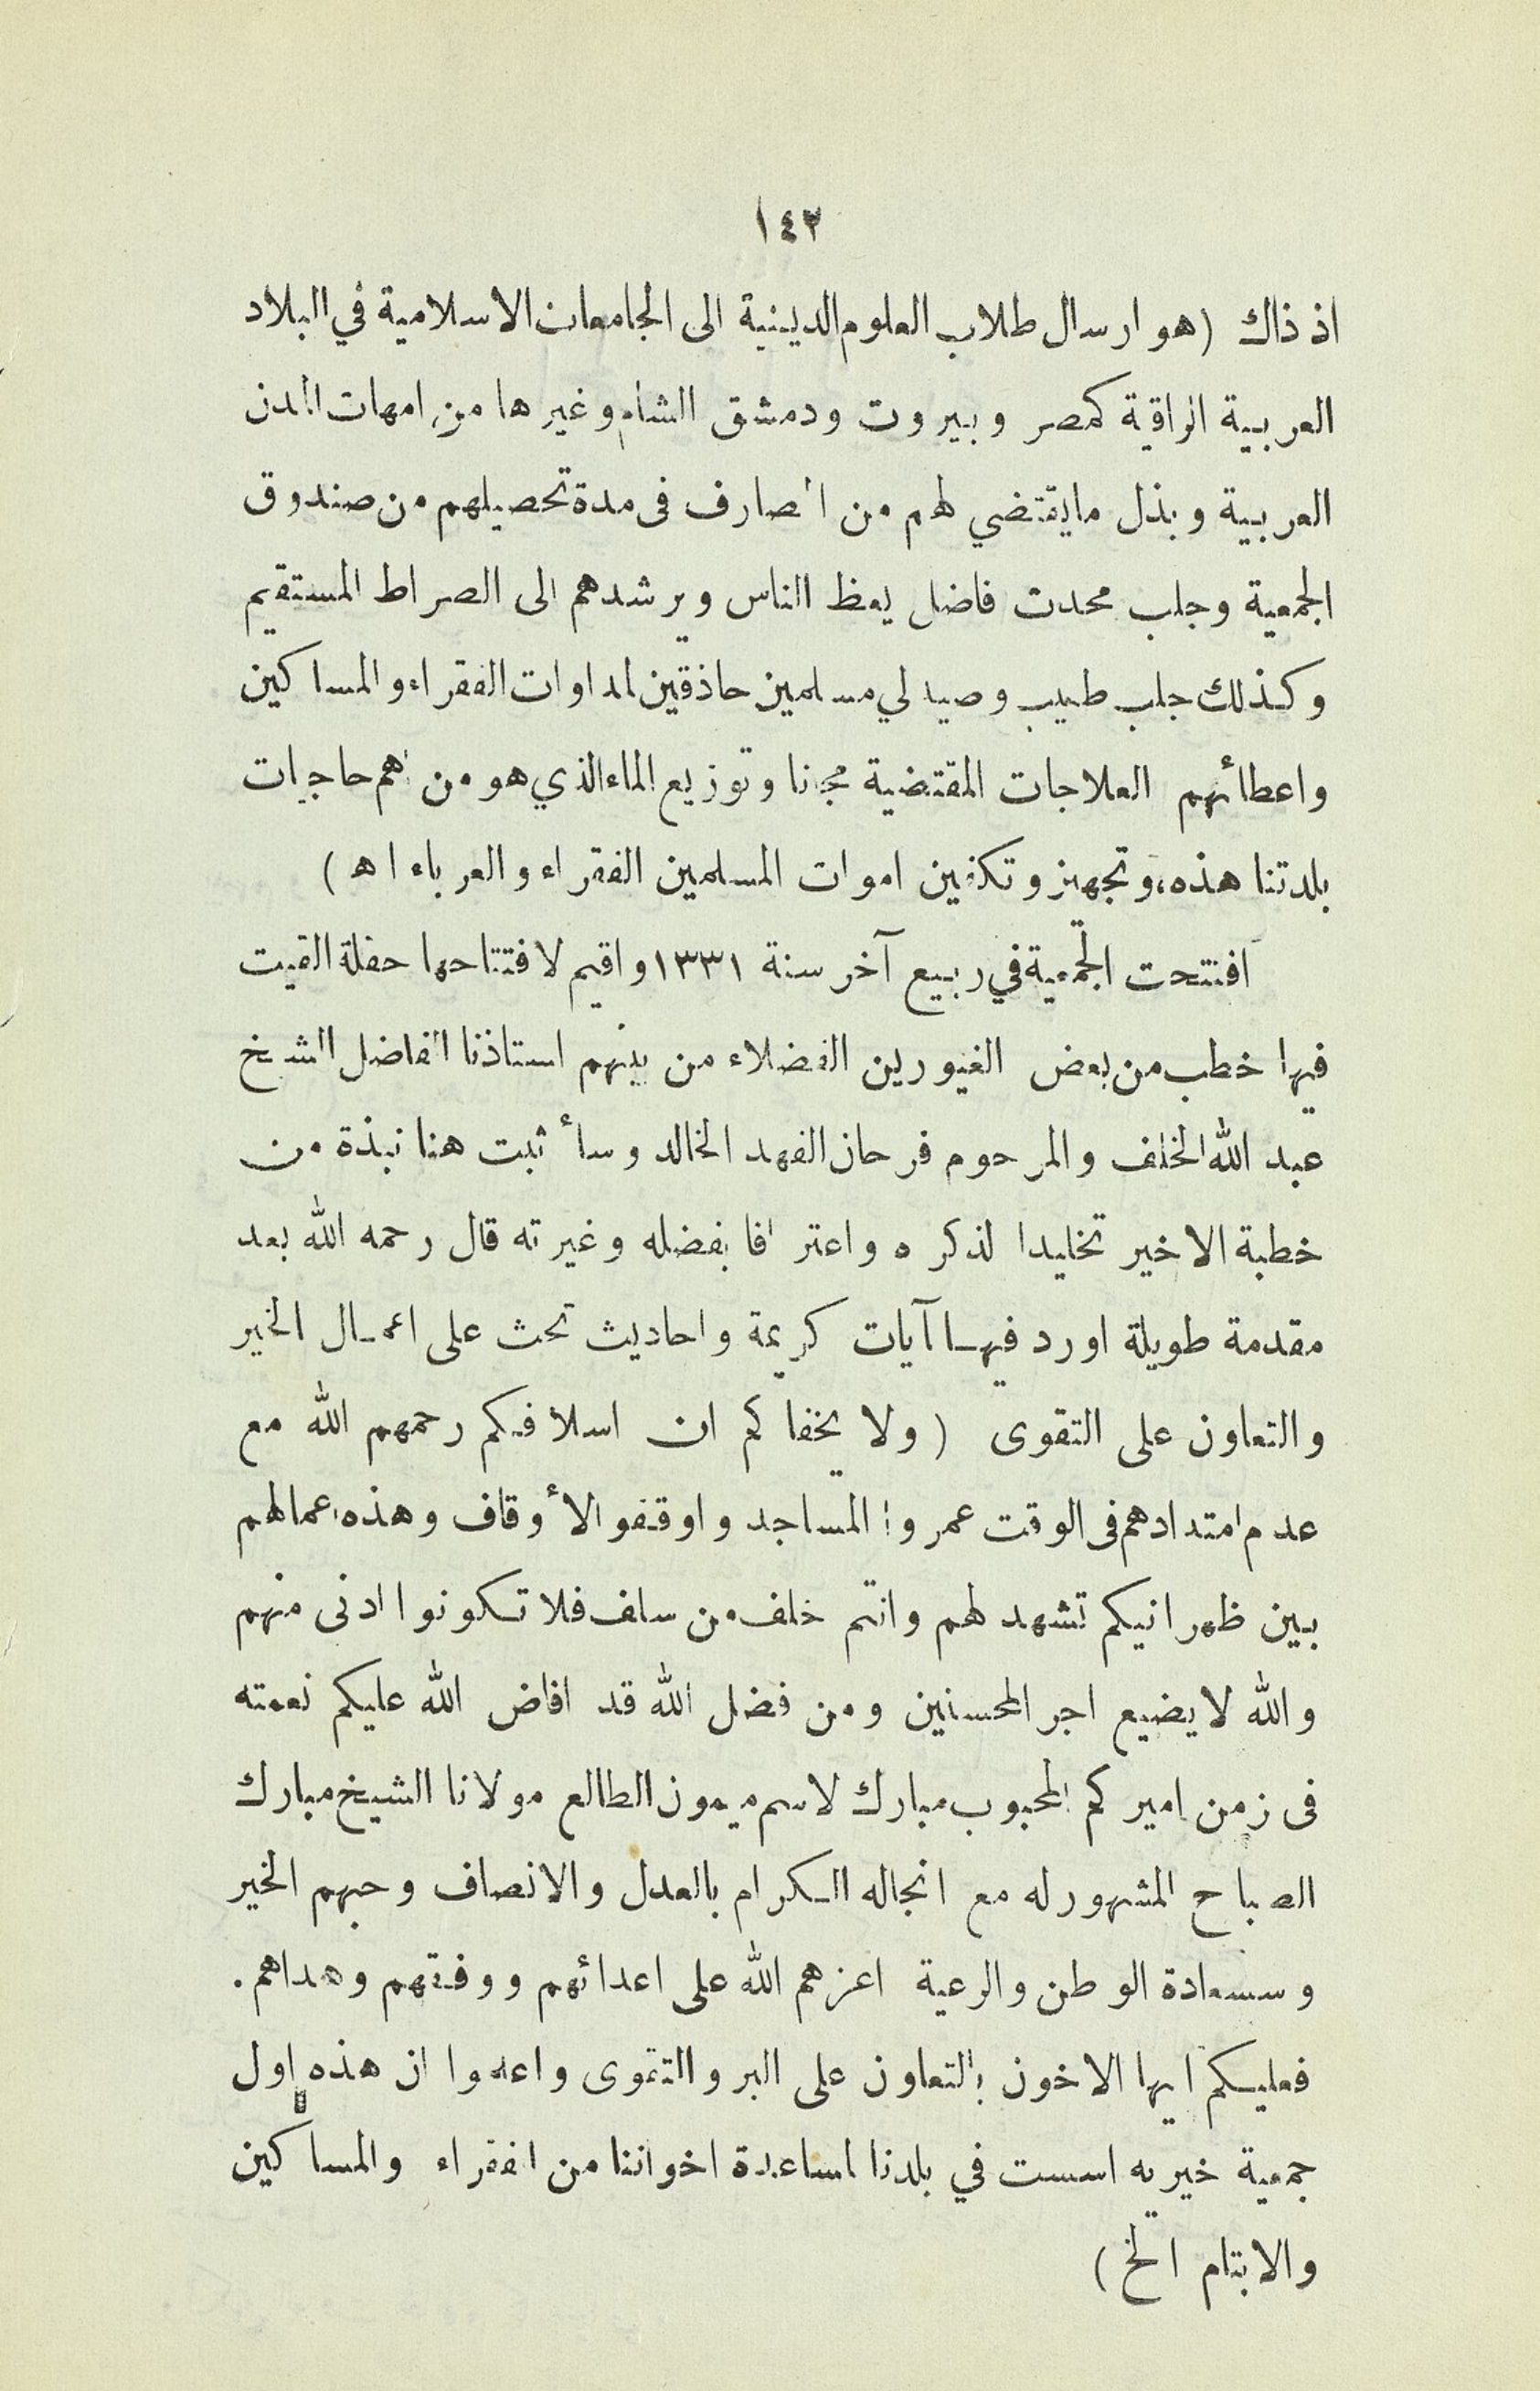 ١٤٢
اذ ذاك (هو ارسال طلاب العلوم الدينية الى الجامعات الاسلامية في البلاد
العربية الراقية كمصر وبيروت ودمشق الشام وغيرها من امهات المدن
العربية وبذل مايقتضي لهم من المصارف فى مدة تحصيلهم من صندوق
الجمعية وجلب محدث فاضل يعظ الناس ويرشدهم الى الصراط المستقيم
وكذلك جلب طبيب وصيدلي مسلمين حاذقين لمداوات الفقراء والمساكين
واعطائهم العلاجات المقتضية مجانا وتوزيع الماء الذي هو من اهم حاجيات
بلدتنا هذه، وتجهيز وتكفين اموات المسلمين الفقراء والغرباء اه )
افتتحت الجمعية في ربيع آخر سنة ١٣٣١ واقيم لافتتاحها حفلة القيت
فيها خطب من بعض الغيورين الفضلاء من بينهم استاذنا الفاضل الشيخ
عبد الله الخلف والمرحوم فرحان الفهد الخالد وسأثبت هنا نبذة من
خطبة الاخير تخليدا لذكره واعترافا بفضله وغيرته قال رحمه الله بعد
مقدمة طويلة اورد فيها آيات كريمة واحاديث تحث على اعمال الخير
والتعاون على التقوى (ولا يخفاكم ان اسلافكم رحمهم الله مع
عدم امتدادهم فى الوقت عمروا المساجد واوقفو الأوقاف وهذه اعمالهم
بين ظهرانيكم تشهد لهم وانتم خلف من سلف فلا تكونوا ادنى منهم
والله لا يضيع اجر المحسنين ومن فضل الله قد افاض الله عليكم نعمته
فى زمن اميركم المحبوب مبارك لاسم ميمون الطالع مولانا الشيخ مبارك
الصباح المشهور له مع انجاله الكرام بالعدل والانصاف وحبهم الخير
وسعادة الوطن والرعية اعزهم الله على اعدائهم ووفقهم وهداهم.
فعليكم ايها الاخون بالتعاون على البر والتقوى واعلموا ان هذه اول
جمعية خيريه اسست في بلدنا لمساعدة اخواننا من الفقراء والمساكين
والايتام الخ )